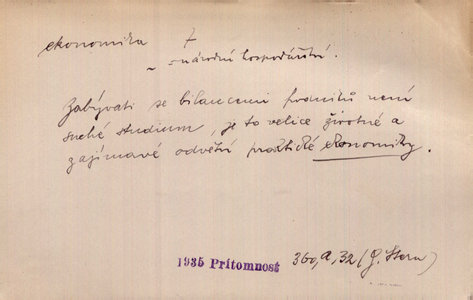 ekonomika f
~ = národní hospodářství.
Zabývati se bilancemi podniků není
suché studium, je to velice životné a
zajímavé odvětví praktické ekonomiky.
1935 Přítomnost 360, a, 32 (J. Stern)